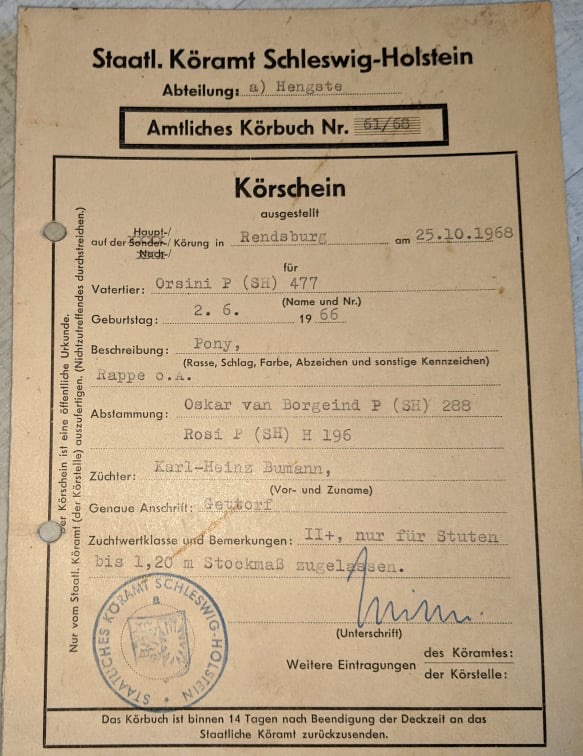 Staatl. Köramt Schleswig-Holstein
Abteilung: a) Hengste
Amtliches Körbuch Nr. 61/68
Körschein
ausgestellt
Haupt-/
auf der Sonder-/ Körung in Rendsburg am 25.10.1968
Nach-/
für
Vatertier: Orsini P (SH) 477
(Name und Nr.)
Geburtstag: 2. 6. 19 66
Beschreibung: Pony,
(Rasse, Schlag, Farbe, Abzeichen und sonstige Kennzeichen)
Rappe o.A.
Abstammung: Oskar van Borgeind P (SH) 288
Rosi P (SH) H 196
Züchter: Karl-Heinz Bumann,
(Vor- und Zuname)
Genaue Anschrift: Gettorf
Zuchtwertklasse und Bemerkungen: II+, nur für Stuten
bis 1,20 m Stockmaß zugelassen.
(Unterschrift)
Weitere Eintragungen des Köramtes:
der Körstelle:
STAATLICHES KÖRAMT SCHLESWIG-HOLSTEIN
a
Das Körbuch ist binnen 14 Tagen nach Beendigung der Deckzeit an das
Staatliche Köramt zurückzusenden.
Der Körschein ist eine öffentliche Urkunde.
Nur vom Staatl. Köramt (der Körstelle) auszufertigen. (Nichtzutreffendes durchstreichen.)